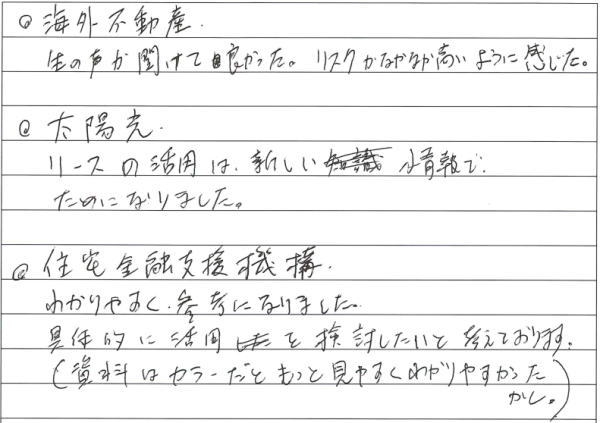 ◎海外不動産.
生の声が聞けて良かった。リスクがなかなか高いように感じた。
◎太陽光.
リースの活用は、新しい情報で、
ためになりました。
◎住宅金融支援機構.
わかりやすく、参考になりました。
具体的に活用を検討したいと考えております。
(資料はカラーだともっと見やすくわかりやすかった
かし。)